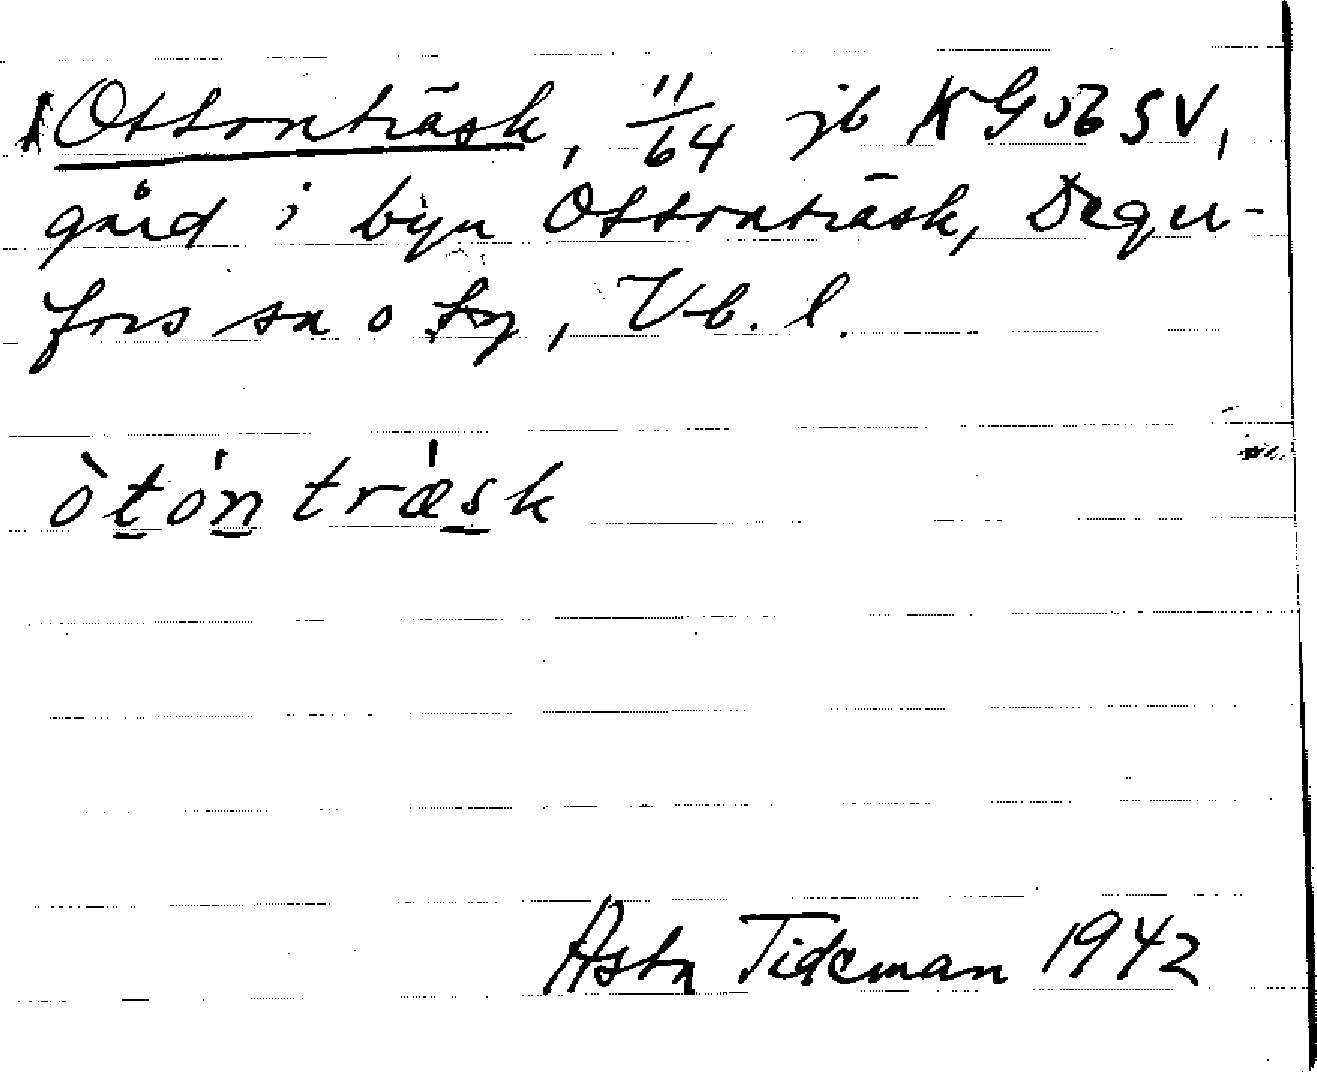 Ottonträsk, 11/64 jb KGobSV,
gård i byn Ottonträsk, Degер-
fors sn o tg, Vb. l.
òtón træsk
Asta Tideman 1942